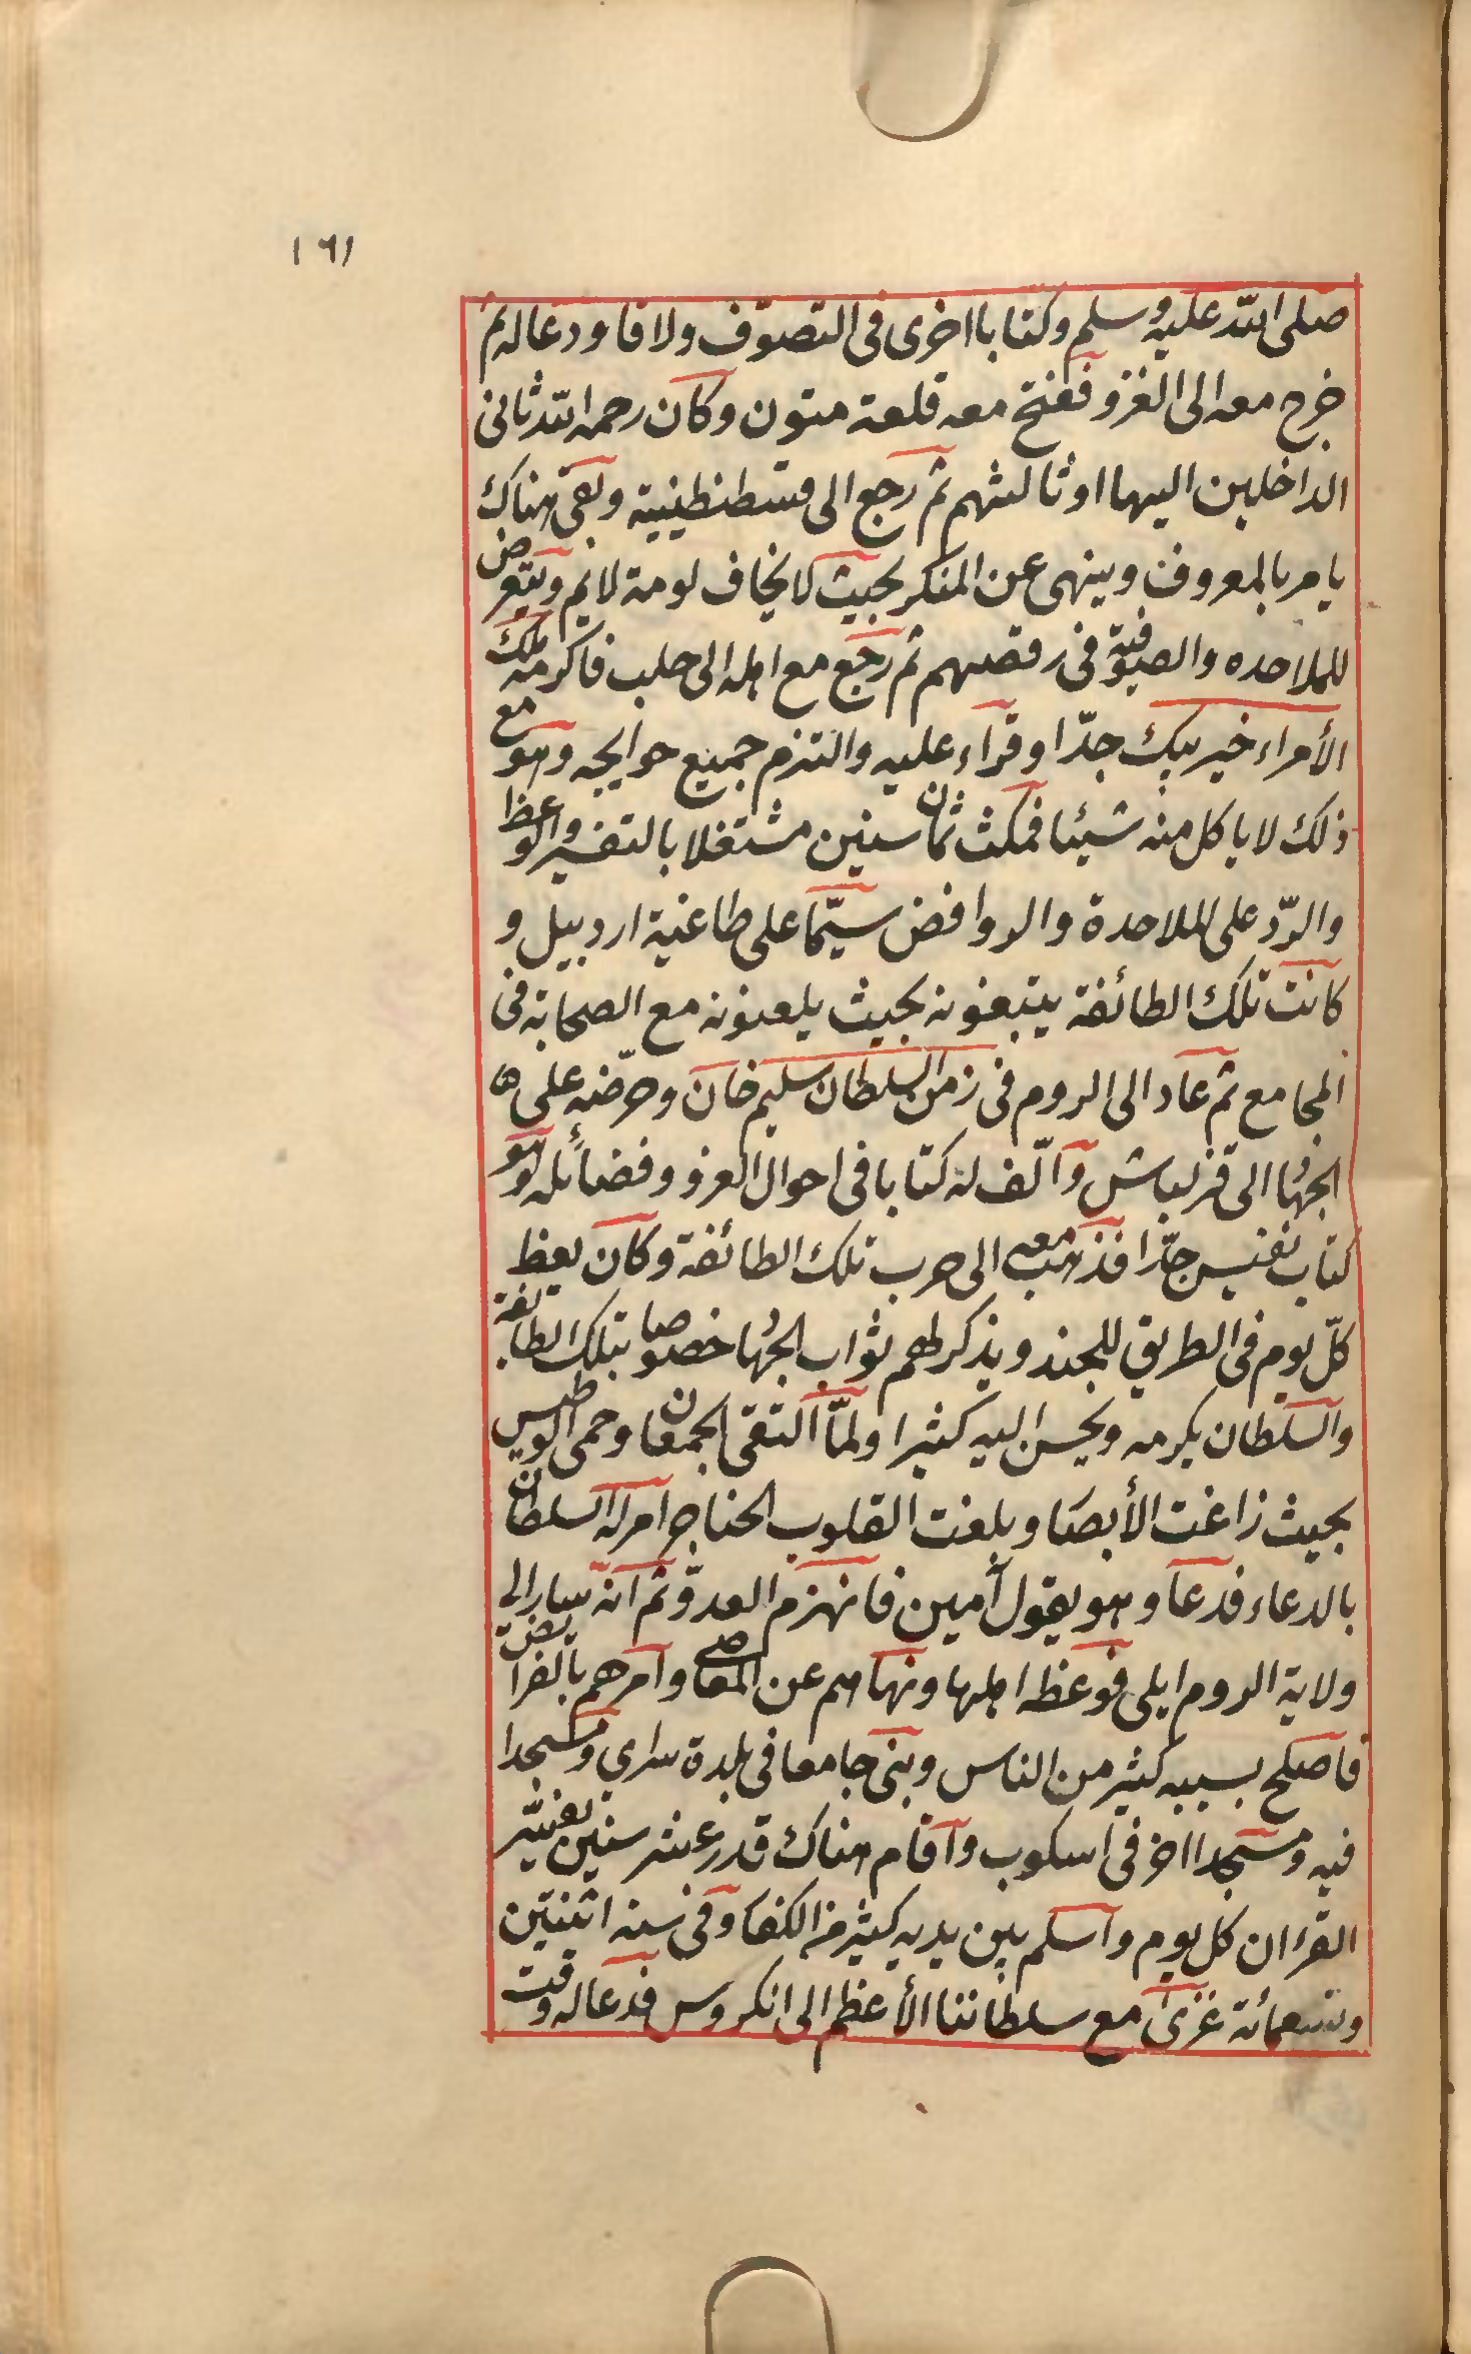 ١٦١
صلى الله عليه وسلم وكتابا اخرى فى التصوف ولاقاه ودعا له ثم
خرج معه الى الغزو ففتح معه قلعة متون وكان رحمه الله ثانى
الداخلين اليها او ثالثهم ثم رجع الى قسطنطينية وبقى هناك
يامر بالمعروف وينهى عن المنكر بحيث لا يخاف لومة لائم ويتعرض
للملاحده والصوفية فى رقصهم ثم رجع مع اهله الى حلب فاكرمه ملك
الأمراء خير بيك جدّا وقرأء عليه والتزم جميع حوايجه وهو مع
ذلك لا ياكل منه شيئا فمكث ثمان سنين مشتغلا بالتفسير والوعظ
والردّ على الملاحدة والروافض سيّما على طاغية اردبيل و
كانت تلك الطائفة يتبعونه بحيث يلعنونه مع الصحابة فى
المجامع ثم عاد الى الروم فى زمن السلطان سليم خان وحرّضه على ه
الجهاد الى قزلباش وآلّف له كتابا فى احوال الغزو وفضائله وهو
كتاب نفيس جدّا فذهب معه الى حرب تلك الطائفة وكان يعظ
كلّ يوم فى الطريق للجند ويذكر لهم ثواب الجهاد خصوصا بتلك الطائفة
والسلطان يكرمه ويحسن اليه كثيرا ولمّا التقى الجمعان وحمى الوطيس
بحيث زاغت الأبصار وبلغت القلوب الحناجر امر له السلطان
بالدعاء فدعا وهو يقول آمين فانهزم العدوّ ثم انه سار الى
ولاية الروم ايلى فوعظه اهلها ونهاهم عن المعاصى وامرهم بالفرائض
فاصلح بسببه كثير من الناس وبنى جامعا فى بلدة سراي ومسجدا
فيه ومسجدا اخر فى اسكوب وآقام هناك قدر عشر سنين يفسّر
القرءان كل يوم وآسلم بين يديه كثير من الكفار وفى سنه اثنتين
وتسعمائة غزى مع سلطاننا الأعظم الى انكروس فدعا له وقت